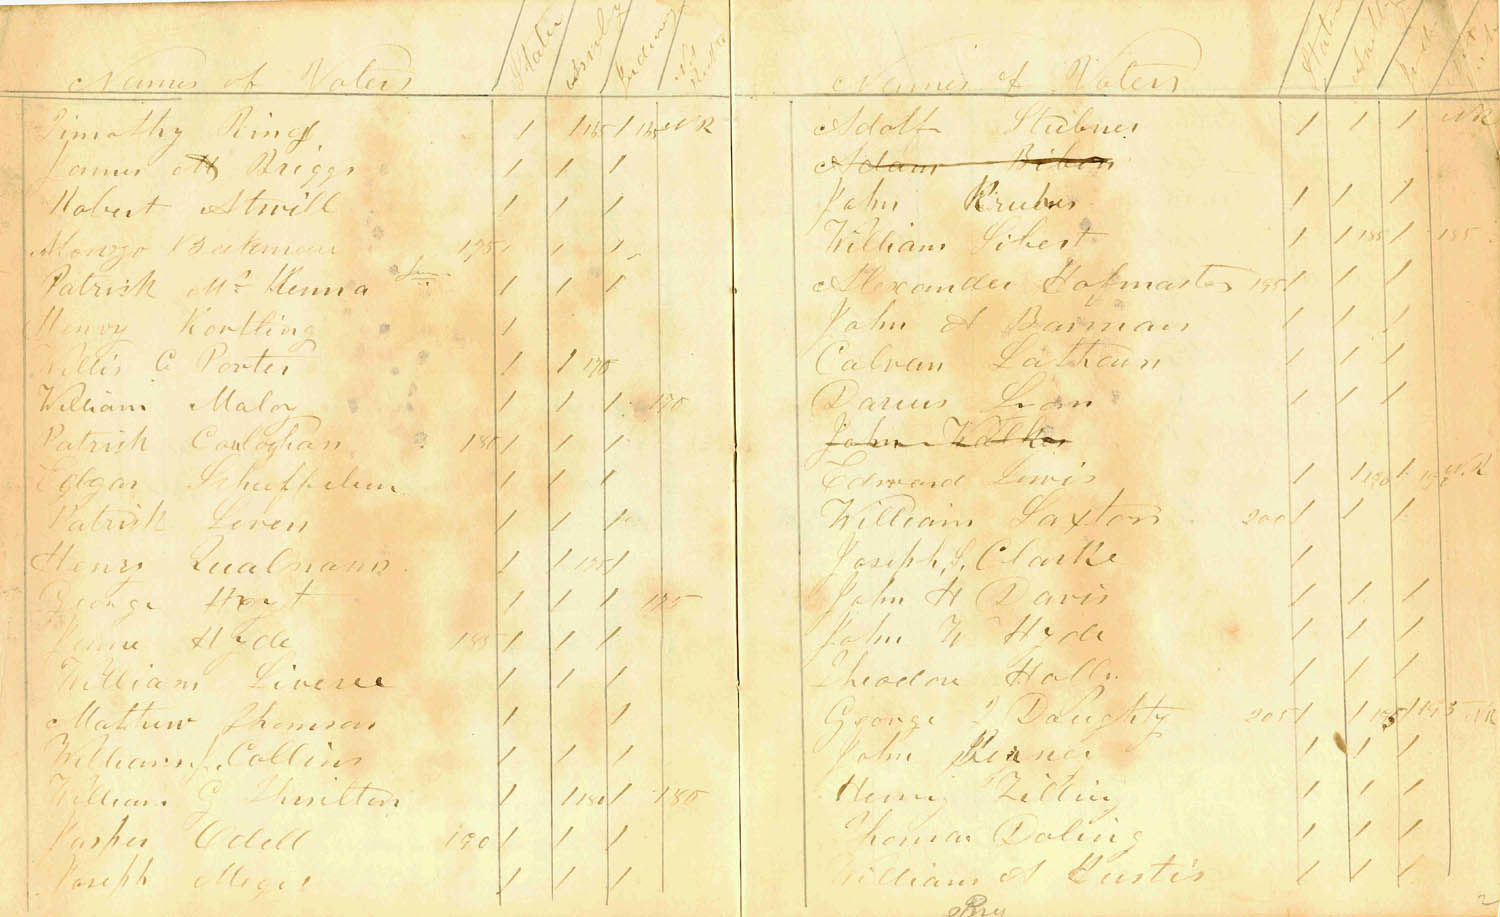 Names of Voters State Assembly Judiciary Not
Timothy Ring 1 1 165 1 165 NR
James M Briggs 1 1 1
Robert Atwill 1 1 1
Alonzo Bateman 175 1 1 1
Patrick Mc Kenna 1 1 1
Henry Kortling 1
Willis C Porter 1 1 170
William Maloy 1 1 1 170
Patrick Conloghan 180 1 1 1
Edgar Schuffelin 1 1 1
Patrick Liven 1 1 1
Henry Qualmann 1 1 175 1
George Hoyt 1 1 1 175
Hyde 185 1 1 1
William Liveree 1 1 1
Matthew Thomson 1 1
William J. Collins 1 1 1
William G 1 1 180 1 180
Jasper Odell 190 1 1 1
Joseph Magee 1 1 1
Names of Voters State
Adolf Stubner 1 1 1 NR
Adam
John Kruber 1 1 1
William Sibert 1 1 185 1 185
Alexander Hofmaster 195 1 1 1
John A Barman 1 1 1
Calvan Lathoun 1 1 1
Darius Lyon 1 1 1
John Walker
Edward Lewis 1 1 190 1 NR
William Saxton 200 1 1 1
Joseph S. Clarke 1
John H Davis 1 1 1
John W Hyde 1 1 1
Theodore Holly 1 1 1
George Daughty 205 1 1 195 1 195 NR
John 1 1 1
Henry Zilling 1 1 1
Thomas Doling 1 1 1
William A Hustis 1 1 1